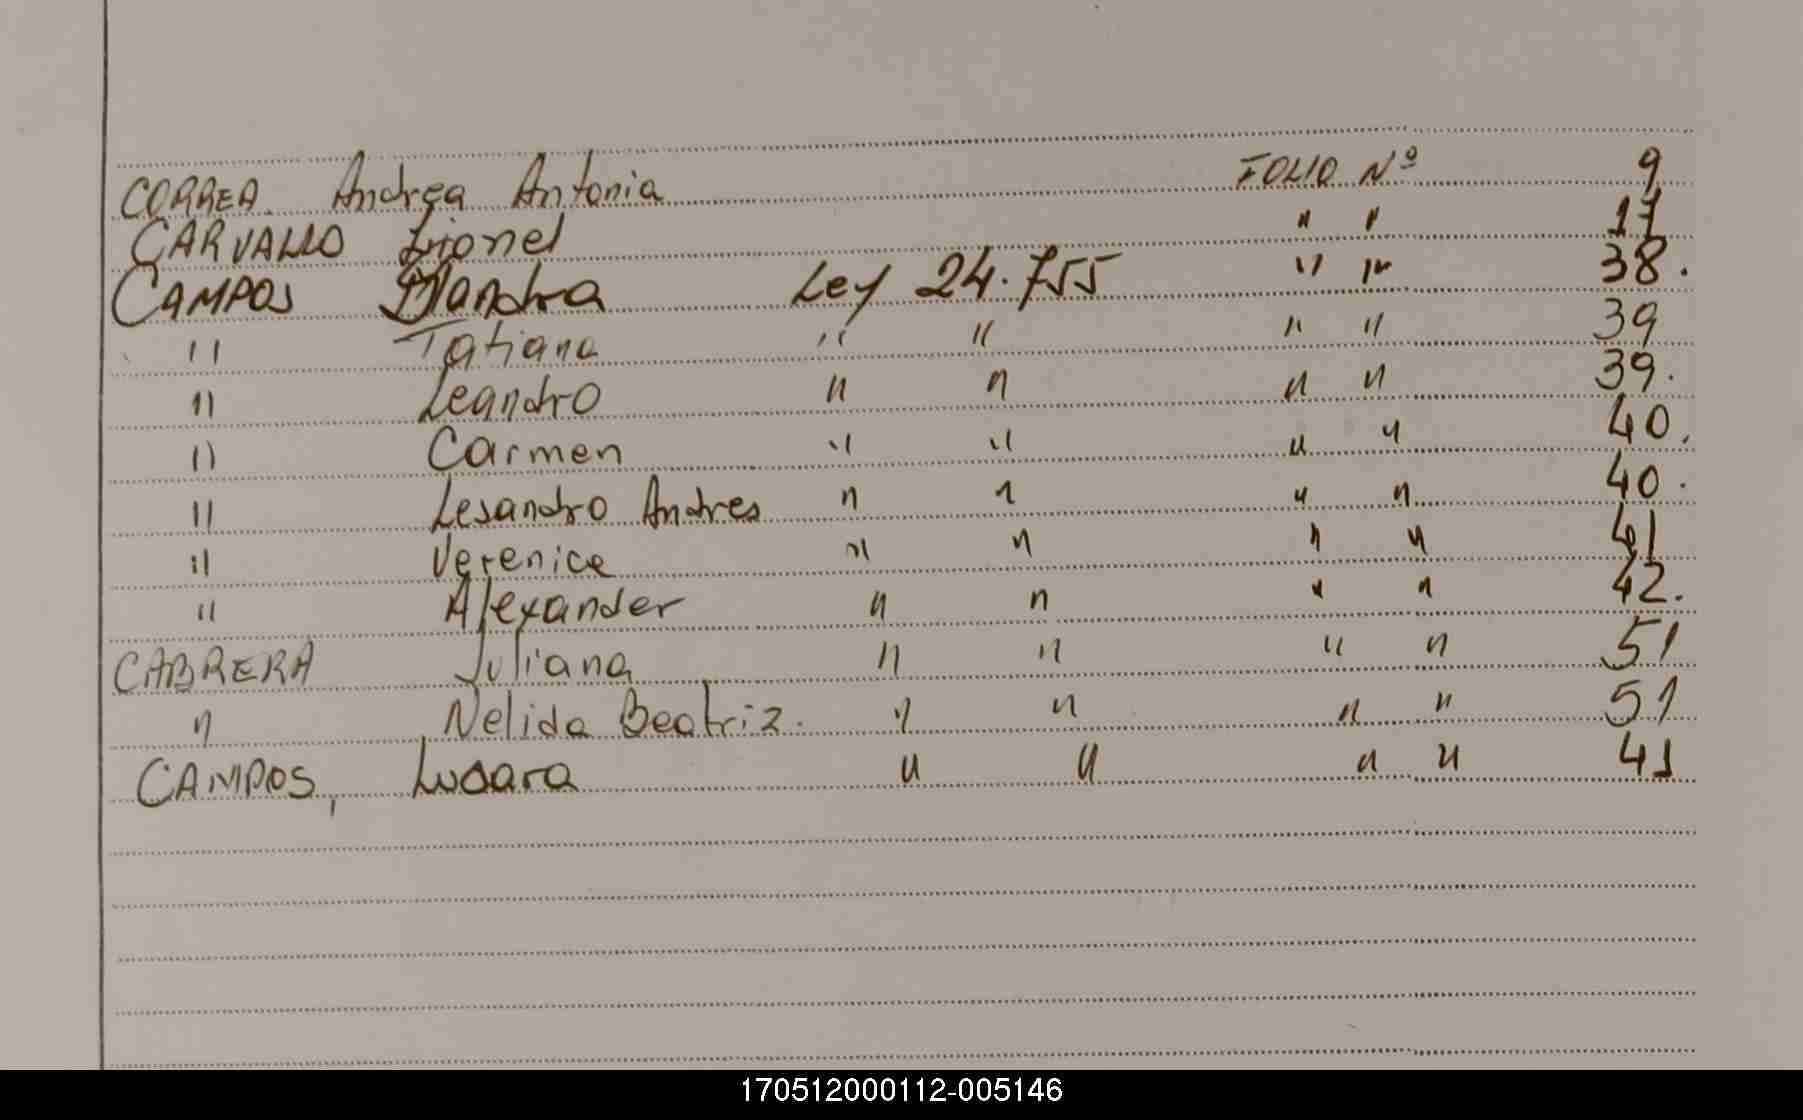 CORREA Andrea Antonia FOLIO Nº 9
CARVALLO Lionel " " 17
CAMPOS Ley 24.755 " " 38.
" Tatiana " " " " 39
" Leandro " " " " 39.
" Carmen " " " " 40.
" Lesandro Andres " " " " 40.
" Verenice " " " " 41
" Alexander " " " " 42.
CABRERA Juliana " " " " 51
" Nelida Beatriz. " " " " 51
CAMPOS, " " " " 41
170512000112-005146